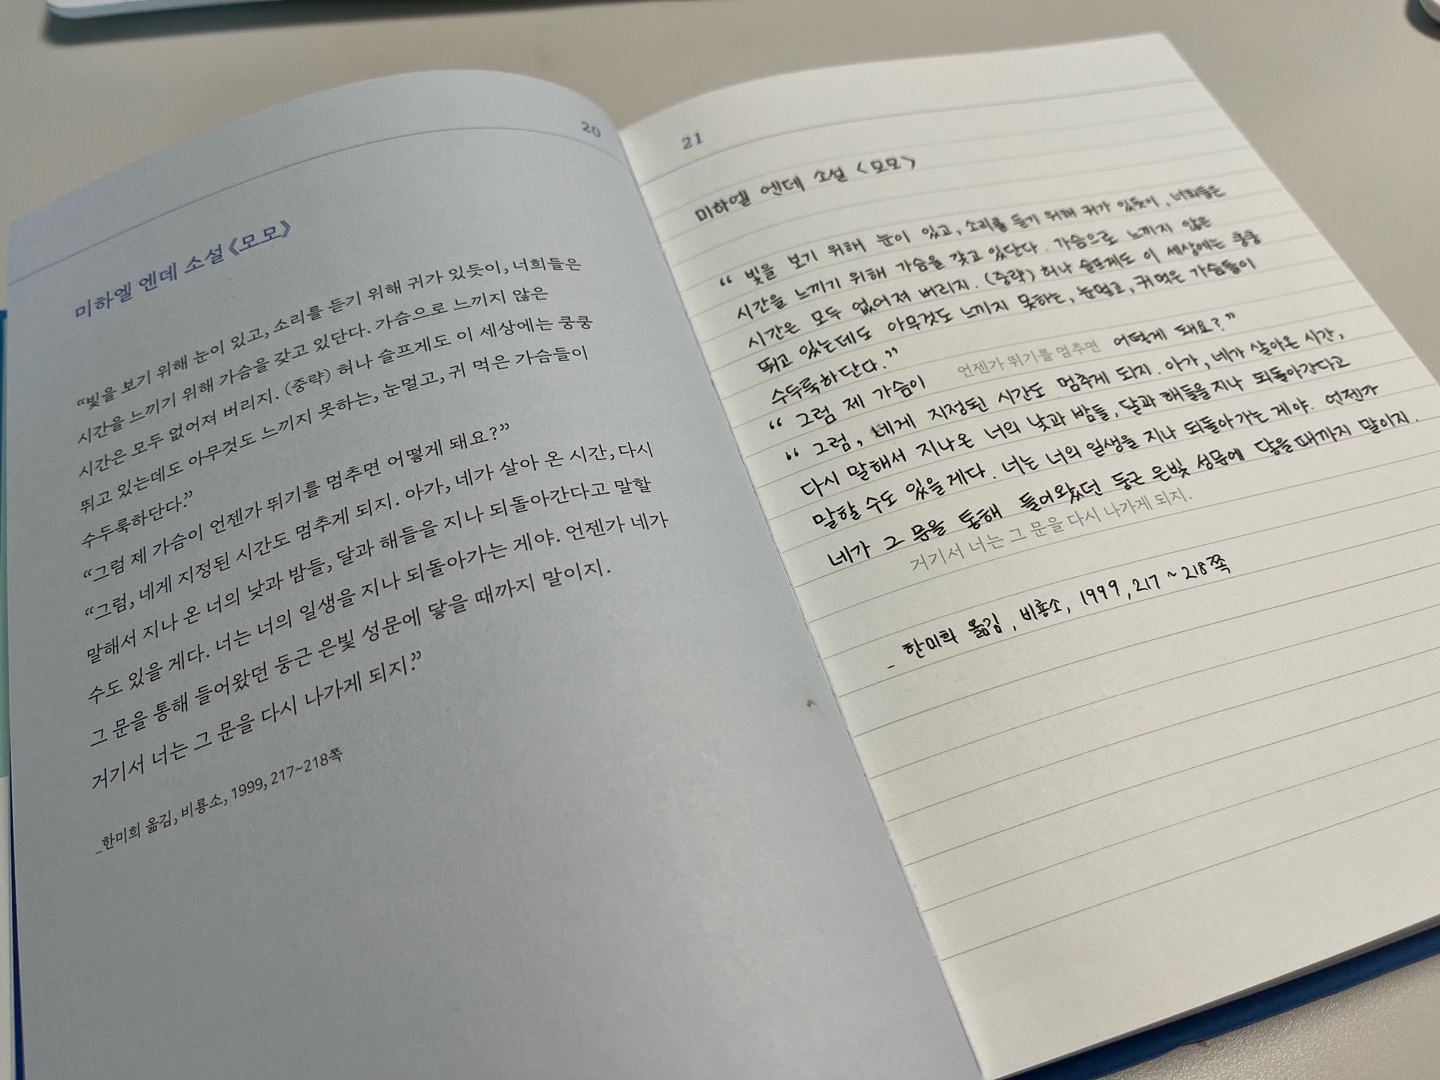 20
미하엘 엔데 소설 《모모》
“빛을 보기 위해 눈이 있고, 소리를 듣기 위해 귀가 있듯이, 너희들은
시간을 느끼기 위해 가슴을 갖고 있단다. 가슴으로 느끼지 않은
시간은 모두 없어져 버리지. (중략) 허나 슬프게도 이 세상에는 쿵쿵
뛰고 있는데도 아무것도 느끼지 못하는, 눈멀고, 귀 먹은 가슴들이
수두룩하단다.”
“그럼 제 가슴이 언젠가 뛰기를 멈추면 어떻게 돼요?”
“그럼, 네게 지정된 시간도 멈추게 되지. 아가, 네가 살아 온 시간, 다시
말해서 지나 온 너의 낮과 밤들, 달과 해들을 지나 되돌아간다고 말할
수도 있을 게다. 너는 너의 일생을 지나 되돌아가는 게야. 언젠가 네가
그 문을 통해 들어왔던 둥근 은빛 성문에 닿을 때까지 말이지.
거기서 너는 그 문을 다시 나가게 되지.”
_한미희 옮김, 비룡소, 1999, 217~218쪽
21
미하엘 엔데 소설 <모모>
“ 빛을 보기 위해 눈이 있고, 소리를 듣기 위해 귀가 있듯이, 너희들은
시간을 느끼기 위해 가슴을 갖고 있단다. 가슴으로 느끼지 않은
시간은 모두 없어져 버리지. (중략) 허나 슬프게도 이 세상에는 쿵쿵
뛰고 있는데도 아무것도 느끼지 못하는, 눈멀고, 귀 먹은 가슴들이
수두룩하단다.”
“ 그럼 제 가슴이 언젠가 뛰기를 멈추면 어떻게 돼요?”
“ 그럼, 네게 지정된 시간도 멈추게 되지. 아가, 네가 살아온 시간,
다시 말해서 지나온 너의 낮과 밤들, 달과 해들을 지나 되돌아간다고
말할 수도 있을 게다. 너는 너의 일생을 지나 되돌아가는 게야. 언젠가
네가 그 문을 통해 들어왔던 둥근 은빛 성문에 닿을 때까지 말이지.
거기서 너는 그 문을 다시 나가게 되지.
_ 한미희 옮김, 비룡소, 1999, 217~218쪽